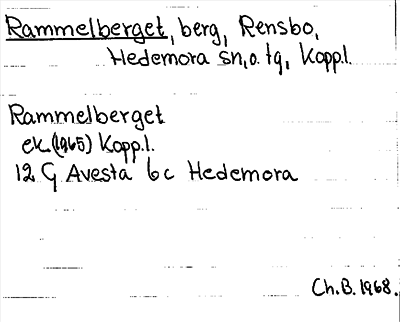 Rammelberget, berg, Rensbo,
Hedemora sn, o. tg, Kopp.l.
Rammelberget
ek.(1965) Kopp.l.
12 G Avesta 6c Hedemora
Ch.B. 1968.